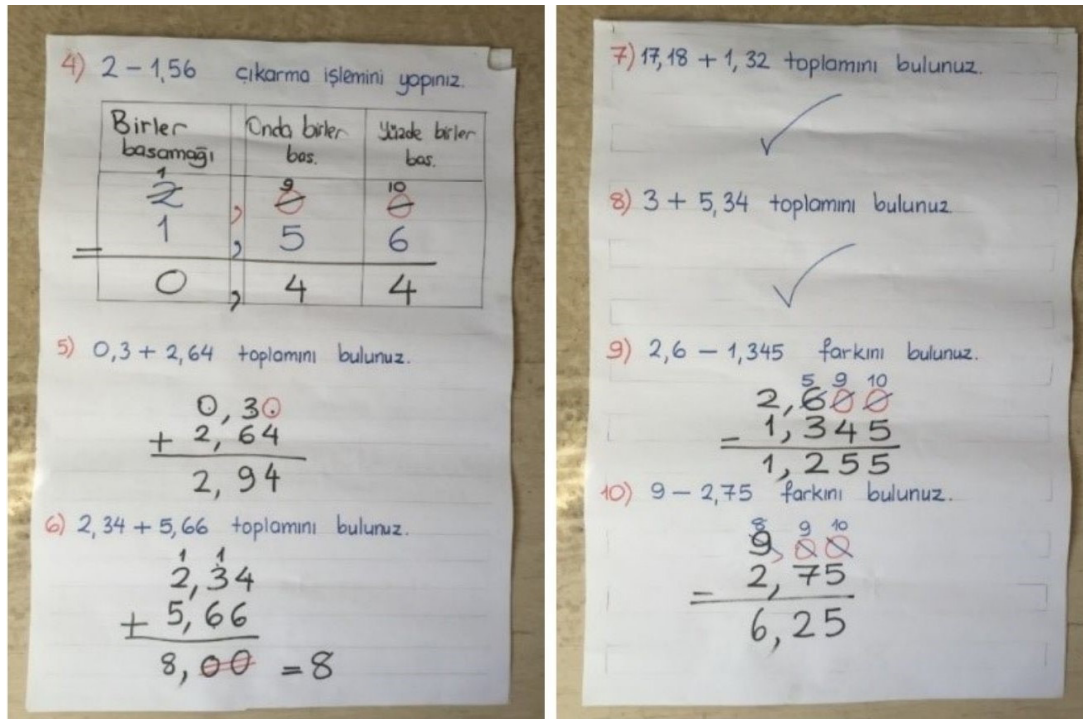 4) 2 – 1,56 çıkarma işlemini yapınız.
Birler basamağı Onda birler bas. Yüzde birler bas.
1 9 10
2 , 0 0
– 1 , 5 6
0 , 4 4
5) 0,3 + 2,64 toplamını bulunuz.
0,30
+ 2,64
2,94
6) 2,34 + 5,66 toplamını bulunuz.
1 1
2,34
+ 5,66
8,00 = 8
7) 17,18 + 1,32 toplamını bulunuz.
8) 3 + 5,34 toplamını bulunuz
9) 2,6 – 1,345 farkını bulunuz.
5 9 10
2,600
– 1,345
1,255
10) 9 – 2,75 farkını bulunuz.
8 9 10
9,00
– 2,75
6,25